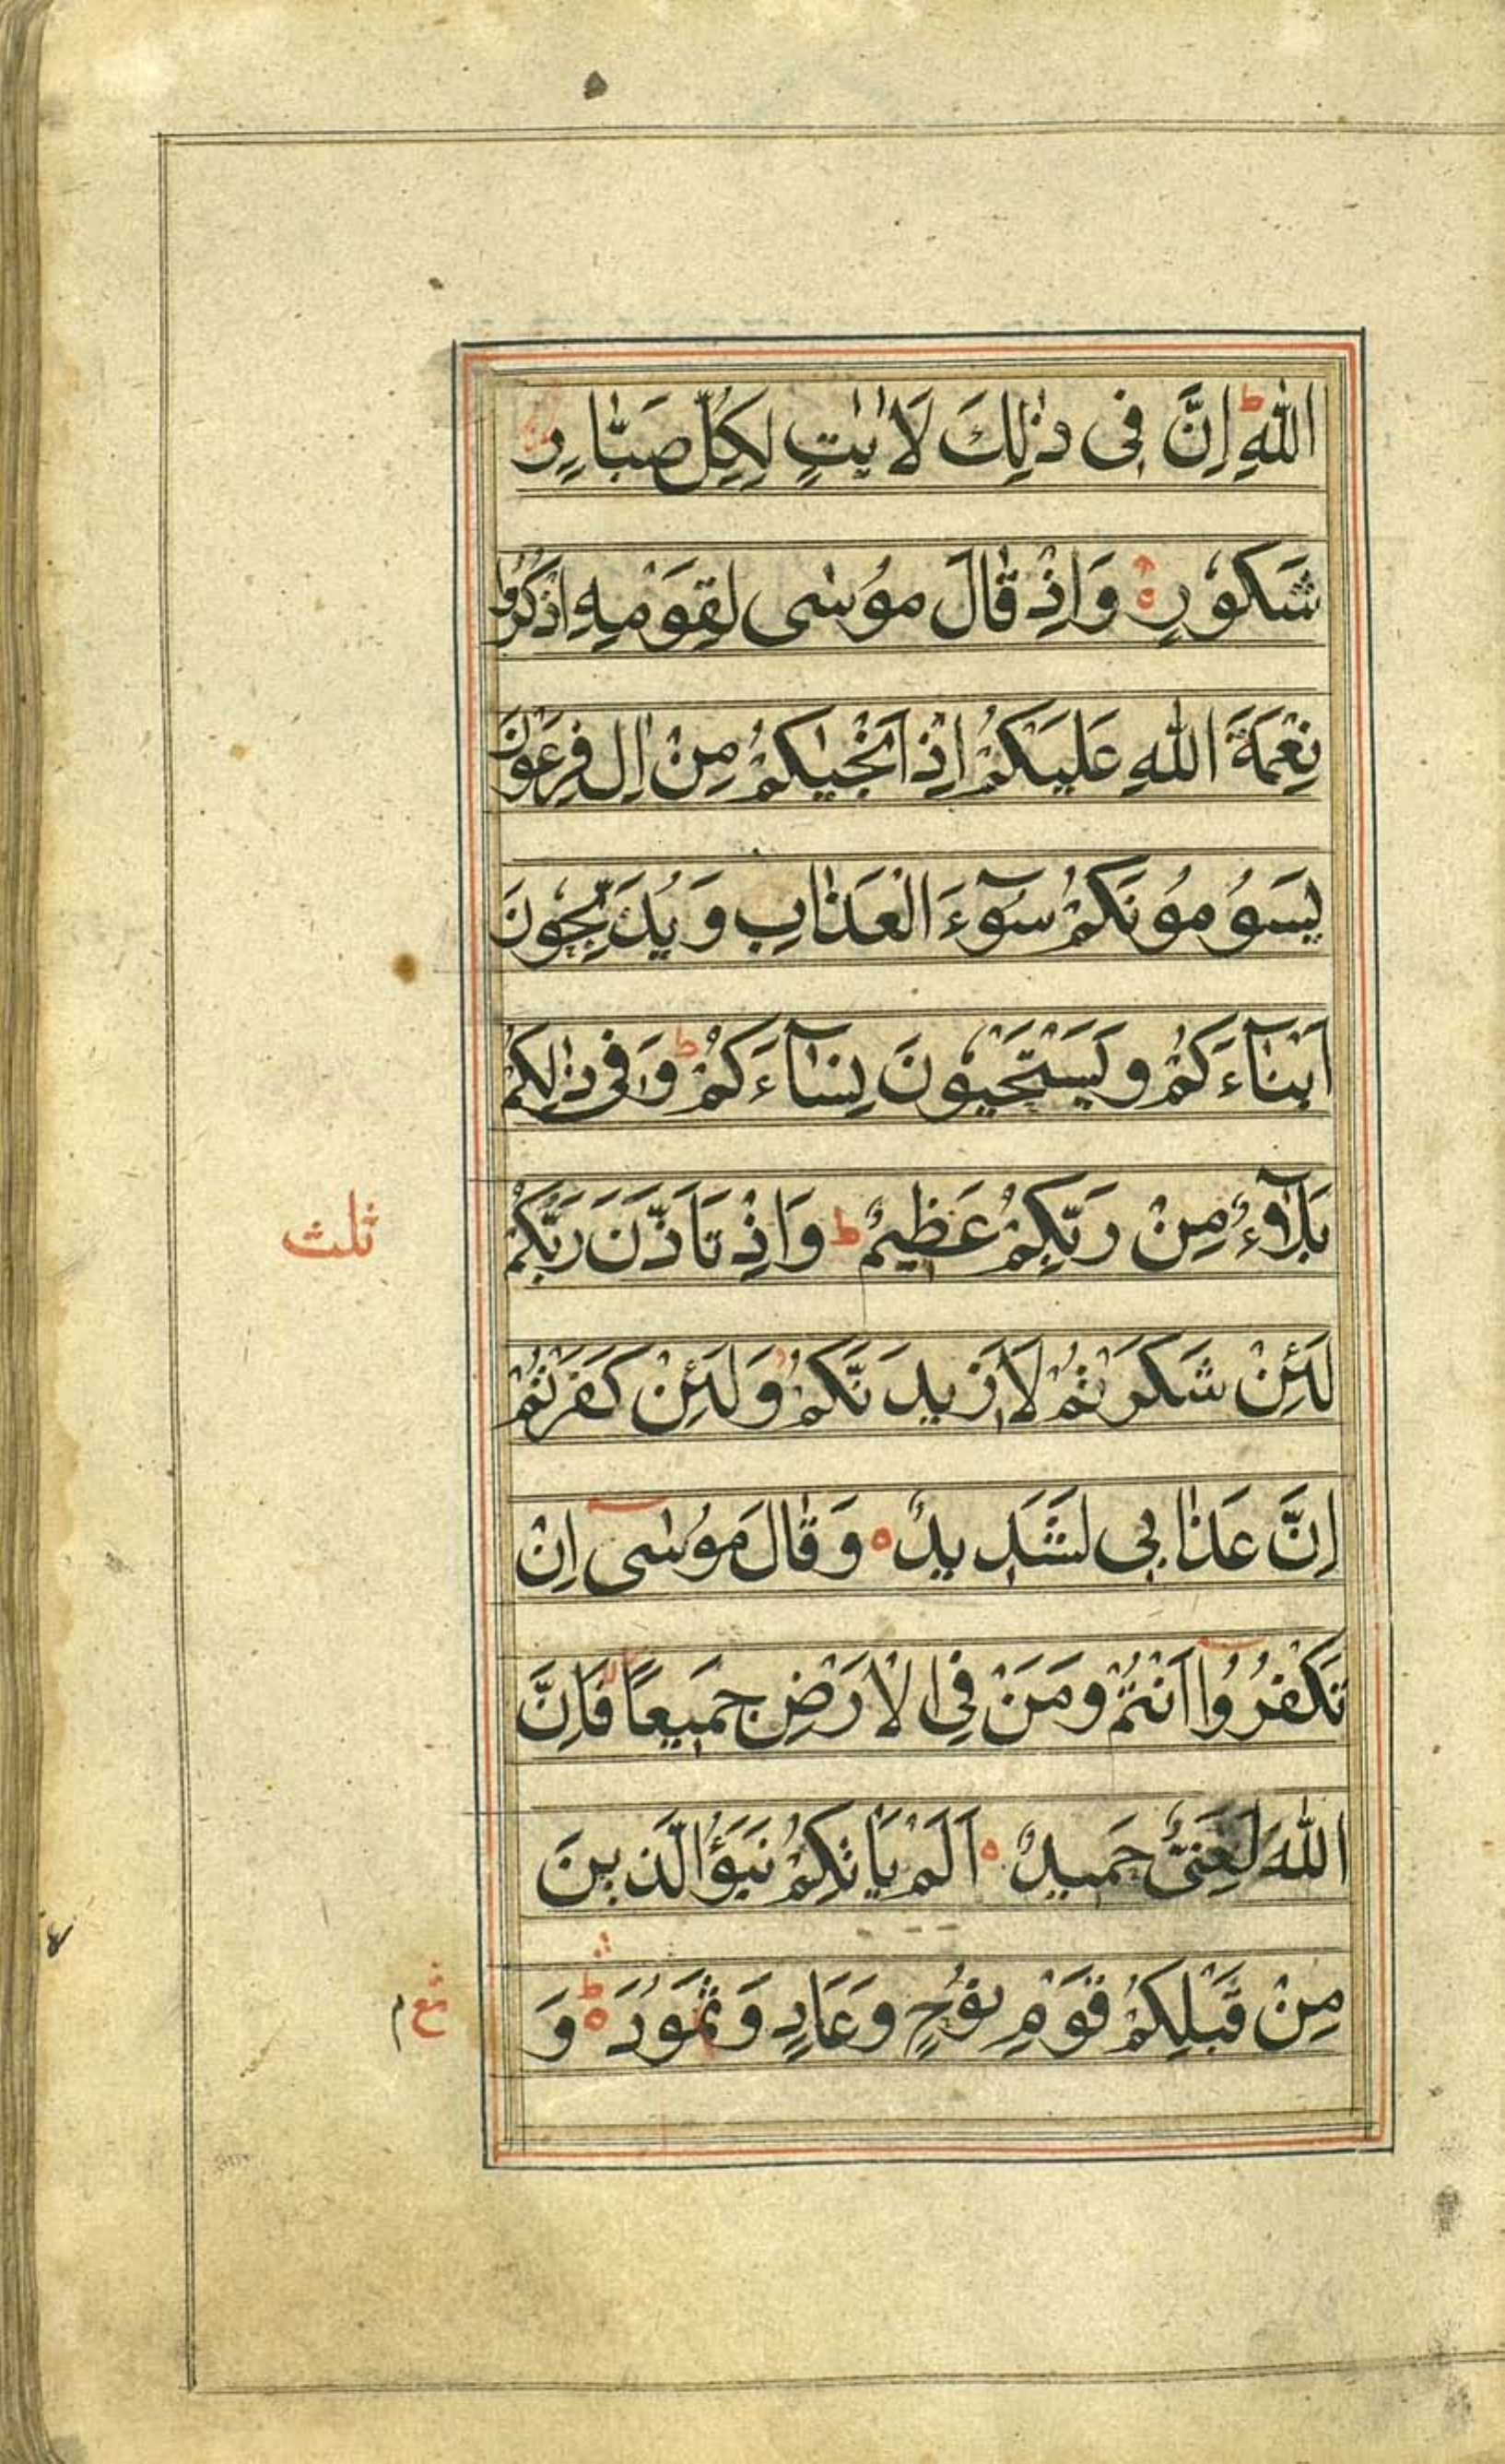 اللّٰهِ ؕ اِنَّ فِی ذٰلِكَ لَاٰیٰتٍ لِكُلِّ صَبَّارٍ
شَكُوْرٍ ۝ وَاِذْ قَالَ مُوْسٰی لِقَوْمِهِ اذْكُرُوْا
نِعْمَةَ اللّٰهِ عَلَیْكُمْ اِذْ اَنْجٰیكُمْ مِنْ اٰلِ فِرْعَوْنَ
یَسُوْمُوْنَكُمْ سُوْٓءَ الْعَذَابِ وَیُذَبِّحُوْنَ
اَبْنَآءَكُمْ وَیَسْتَحْیُوْنَ نِسَآءَكُمْ ؕ وَفِی ذٰلِكُمْ
بَلَآءٌ مِنْ رَبِّكُمْ عَظِیْمٌ ؕ وَاِذْ تَاَذَّنَ رَبُّكُمْ
ثلث
لَئِنْ شَكَرْتُمْ لَاَزِیدَنَّكُمْ وَلَئِنْ كَفَرْتُمْ
اِنَّ عَذَابِی لَشَدِیدٌ ۝ وَقَالَ مُوْسٰٓی اِنْ
تَكْفُرُوْٓا اَنْتُمْ وَمَنْ فِی الْاَرْضِ جَمِیعًا فَاِنَّ
اللّٰهَ لَغَنِیٌّ حَمِیدٌ ۝ اَلَمْ یَاْتِكُمْ نَبَؤُا الَّذِینَ
مِنْ قَبْلِكُمْ قَوْمِ نُوْحٍ وَعَادٍ وَثَمُوْدَ ؕ۝ وَ